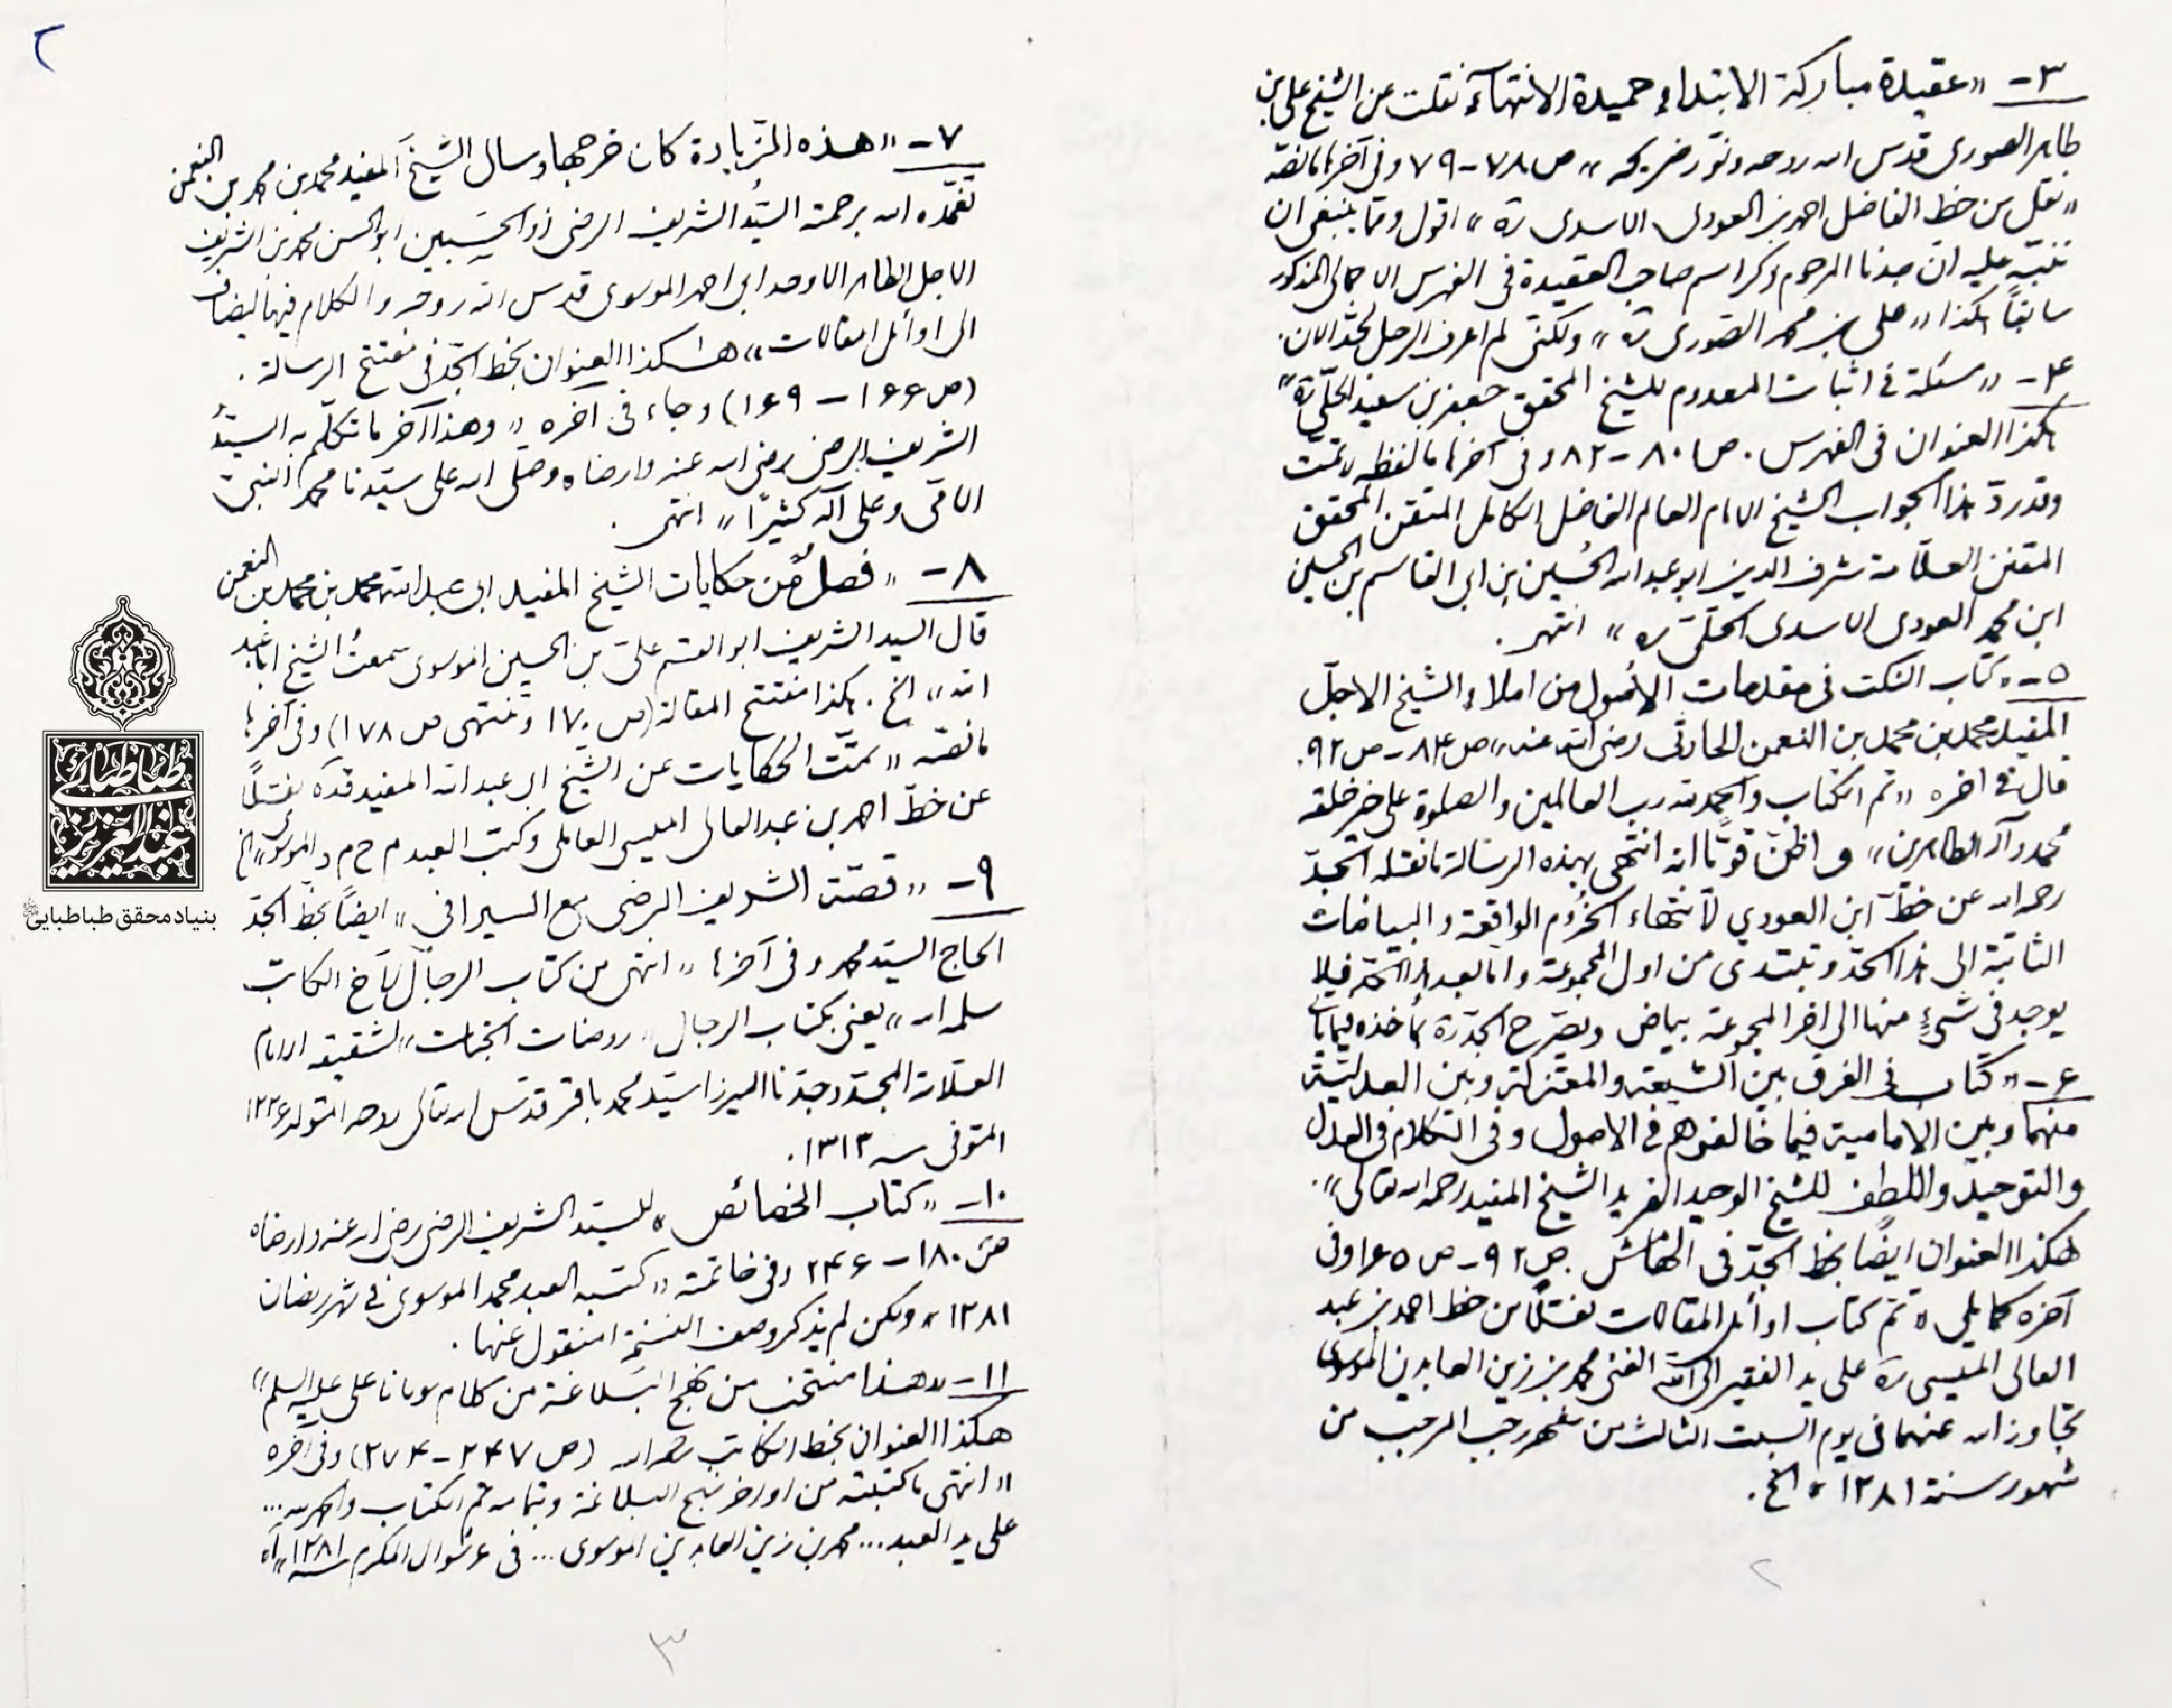 ٣- «عقيدة مباركة الابتداء حميدة الانتهاء نقلت عن الشيخ علي بن
طاهر الصوري قدس الله روحه ونوّر ضريحه» ص ٧٨-٧٩ وفي آخرها ما نصّه
«نقل من خط الفاضل احمد بن العودي الاسدي ره» اقول ومما ينبغي ان
ننبّه عليه ان جدنا المرحوم ذكر اسم صاحب العقيدة في الفهرس الاجمالي المذكور
سابقاً هكذا «علي بن محمد الصوري ره» ولكنّي لم اعرف الرجل لحدّ الان.
۴- «مسئلة في اثبات المعدوم للشيخ المحقق جعفر بن سعيد الحلّي ره»
هكذا العنوان في الفهرس. ص ٨٠-٨٢ وفي آخرها ما لفظه «تمّت
وقد ردّ هذا الجواب الشيخ الامام العالم الفاضل الكامل المتقن المحقق
المتفنن العلّامة شرف الدين ابو عبد الله الحُسين بن ابي القاسم بن الحسين
ابن محمد العودي الاسدي الحلّي ره» انتهى.
٥- «كتاب النكت في مقدمات الأصول من املاء الشيخ الاجلّ
المفيد محمد بن محمد بن النعمن الحارثي رضي الله عنه» ص ٨۴-ص ٩٢.
قال في اخره «تم الكتاب والحمد لله رب العالمين والصلوة على خير خلقه
محمد وآله الطاهرين» واظن قويّا انه انتهى بهذه الرسالة ما نقله الجدّ
رحمه الله عن خطّ ابن العودي لانتهاء الخُروم الواقعة والبياضات
الثابتة الى هذا الحدّ وتبتدى من اول المجموعة واما بعد هذا الحدّ فلا
يوجد في شيءٍ منها الى اخر المجموعة بياض ويصرّح الجدّ ره بأخذه
۶- «كتاب في الفرق بين الشيعة والمعتزلة وبين العدلية
منهما وبين الامامية فيما خالفوهم في الاصول وفي الكلام في العدل
والتوحيد واللطف للشيخ الوحيد الفريد الشيخ المفيد رحمه الله تعالى».
هكذا العنوان ايضاً بخط الجدّ في الهامش. ص ٩٢-ص ١۶٥ وفي
آخره كما يلي «تمّ كتاب اوائل المقالات نقلاً من خط احمد بن عبد
العالي الميسي ره على يد الفقير الى الله الغني محمد بن زين العابدين الموسوي
تجاوز الله عنهما في يوم السبت الثالث من شهر رجب المرجب من
شهور سنة ١٢٨١» الخ.
٢
٢
٧- «هذه الزيادة كان خرجها وسال الشيخ المفيد محمد بن محمد بن النعمن
تغمّده الله برحمته السيّد الشريف الرضي ذو الحسبين ابو الحسن محمد بن الشريف
الاجل الطاهر الاوحد ابي احمد الموسوي قدس الله روحه والكلام فيها يضاف
الى اوائل المقالات» هكذا العنوان بخط الجدّ في مفتتح الرسالة.
(ص ١۶۶-١۶٩) وجاء في اخره «وهذا آخر ما تكلّم به السيّد
الشريف الرضي رضي الله عنه وارضاه وصلى الله على سيّدنا محمد النبيّ
الامّي وعلى آله كثيراً» انتهى.
٨- «فصلٌ من حكايات الشيخ المفيد ابي عبد الله محمد بن محمد بن النعمن
قال السيد الشريف ابو القسم علي بن الحسين الموسوي سمعتُ الشيخ ابا عبد
الله» الخ. هكذا مفتتح المقالة (ص ١٧٠ وتنتهى ص ١٧٨) وفي آخرها
ما نصّه «تمّت الحكايات عن الشيخ ابي عبد الله المفيد قده نقلاً
عن خطّ احمد بن عبد العالي الميسي العاملي وكتب العبد م ح م د الموسوي» الخ
٩- «قصّة الشريف الرضي مع السيرافي» ايضاً بخط الجدّ
الحاج السيّد محمد وفي آخرها «انتهى من كتاب الرجال لأخ الكاتب
سلمه الله» يعني بكتاب الرجال «روضات الجنات» لشقيقه الامام
العلّامة المجدّد جدّنا الميرزا سيّد محمد باقر قدّس الله تعالى روحه المتولد ١٢٢۶
المتوفى سنة ١٣١٣.
١٠- «كتاب الخصائص» للسيّد الشريف الرضي رضي الله عنه وارضاه
ص ١٨٠-٢۴۶ وفي خاتمته «كتبه العبد محمد الموسوي في شهر رمضان
١٢٨١» ولكن لم يذكر وصف النسخة المنقول عنها.
١١- «هذا منتخب من نهج البلاغة من كلام مولانا علي عليه السلم»
هكذا العنوان بخط الكاتب رحمه الله (ص ٢۴٧-٢٧۴) وفي آخره
«انتهى ما كتبته من اواخر نهج البلاغة وبتمامه تم الكتاب والحمد لله...
على يد العبد... محمد بن زين العابدين الموسوي... في ۶ شوال المكرم سنة ١٢٨١» اه
٣
طباطبائي
عبد العزيز
بنیاد محقق طباطبایی